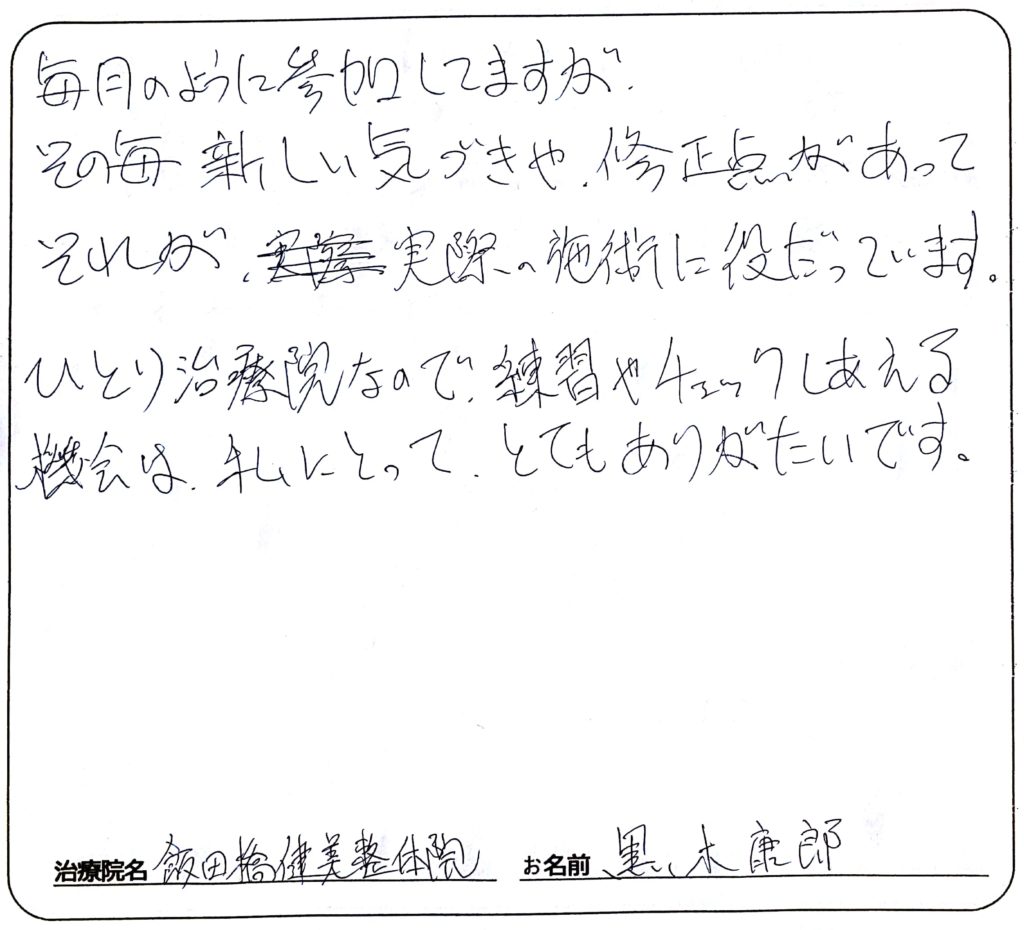 毎月のように参加してますが、
その毎 新しい気づきや、修正点があって
それが、実際の施術に役だっています。
ひとり治療院なので、練習やチェックしあえる
機会は、私にとって、とてもありがたいです。
治療院名 飯田橋健美整体院 お名前 黒木康郎